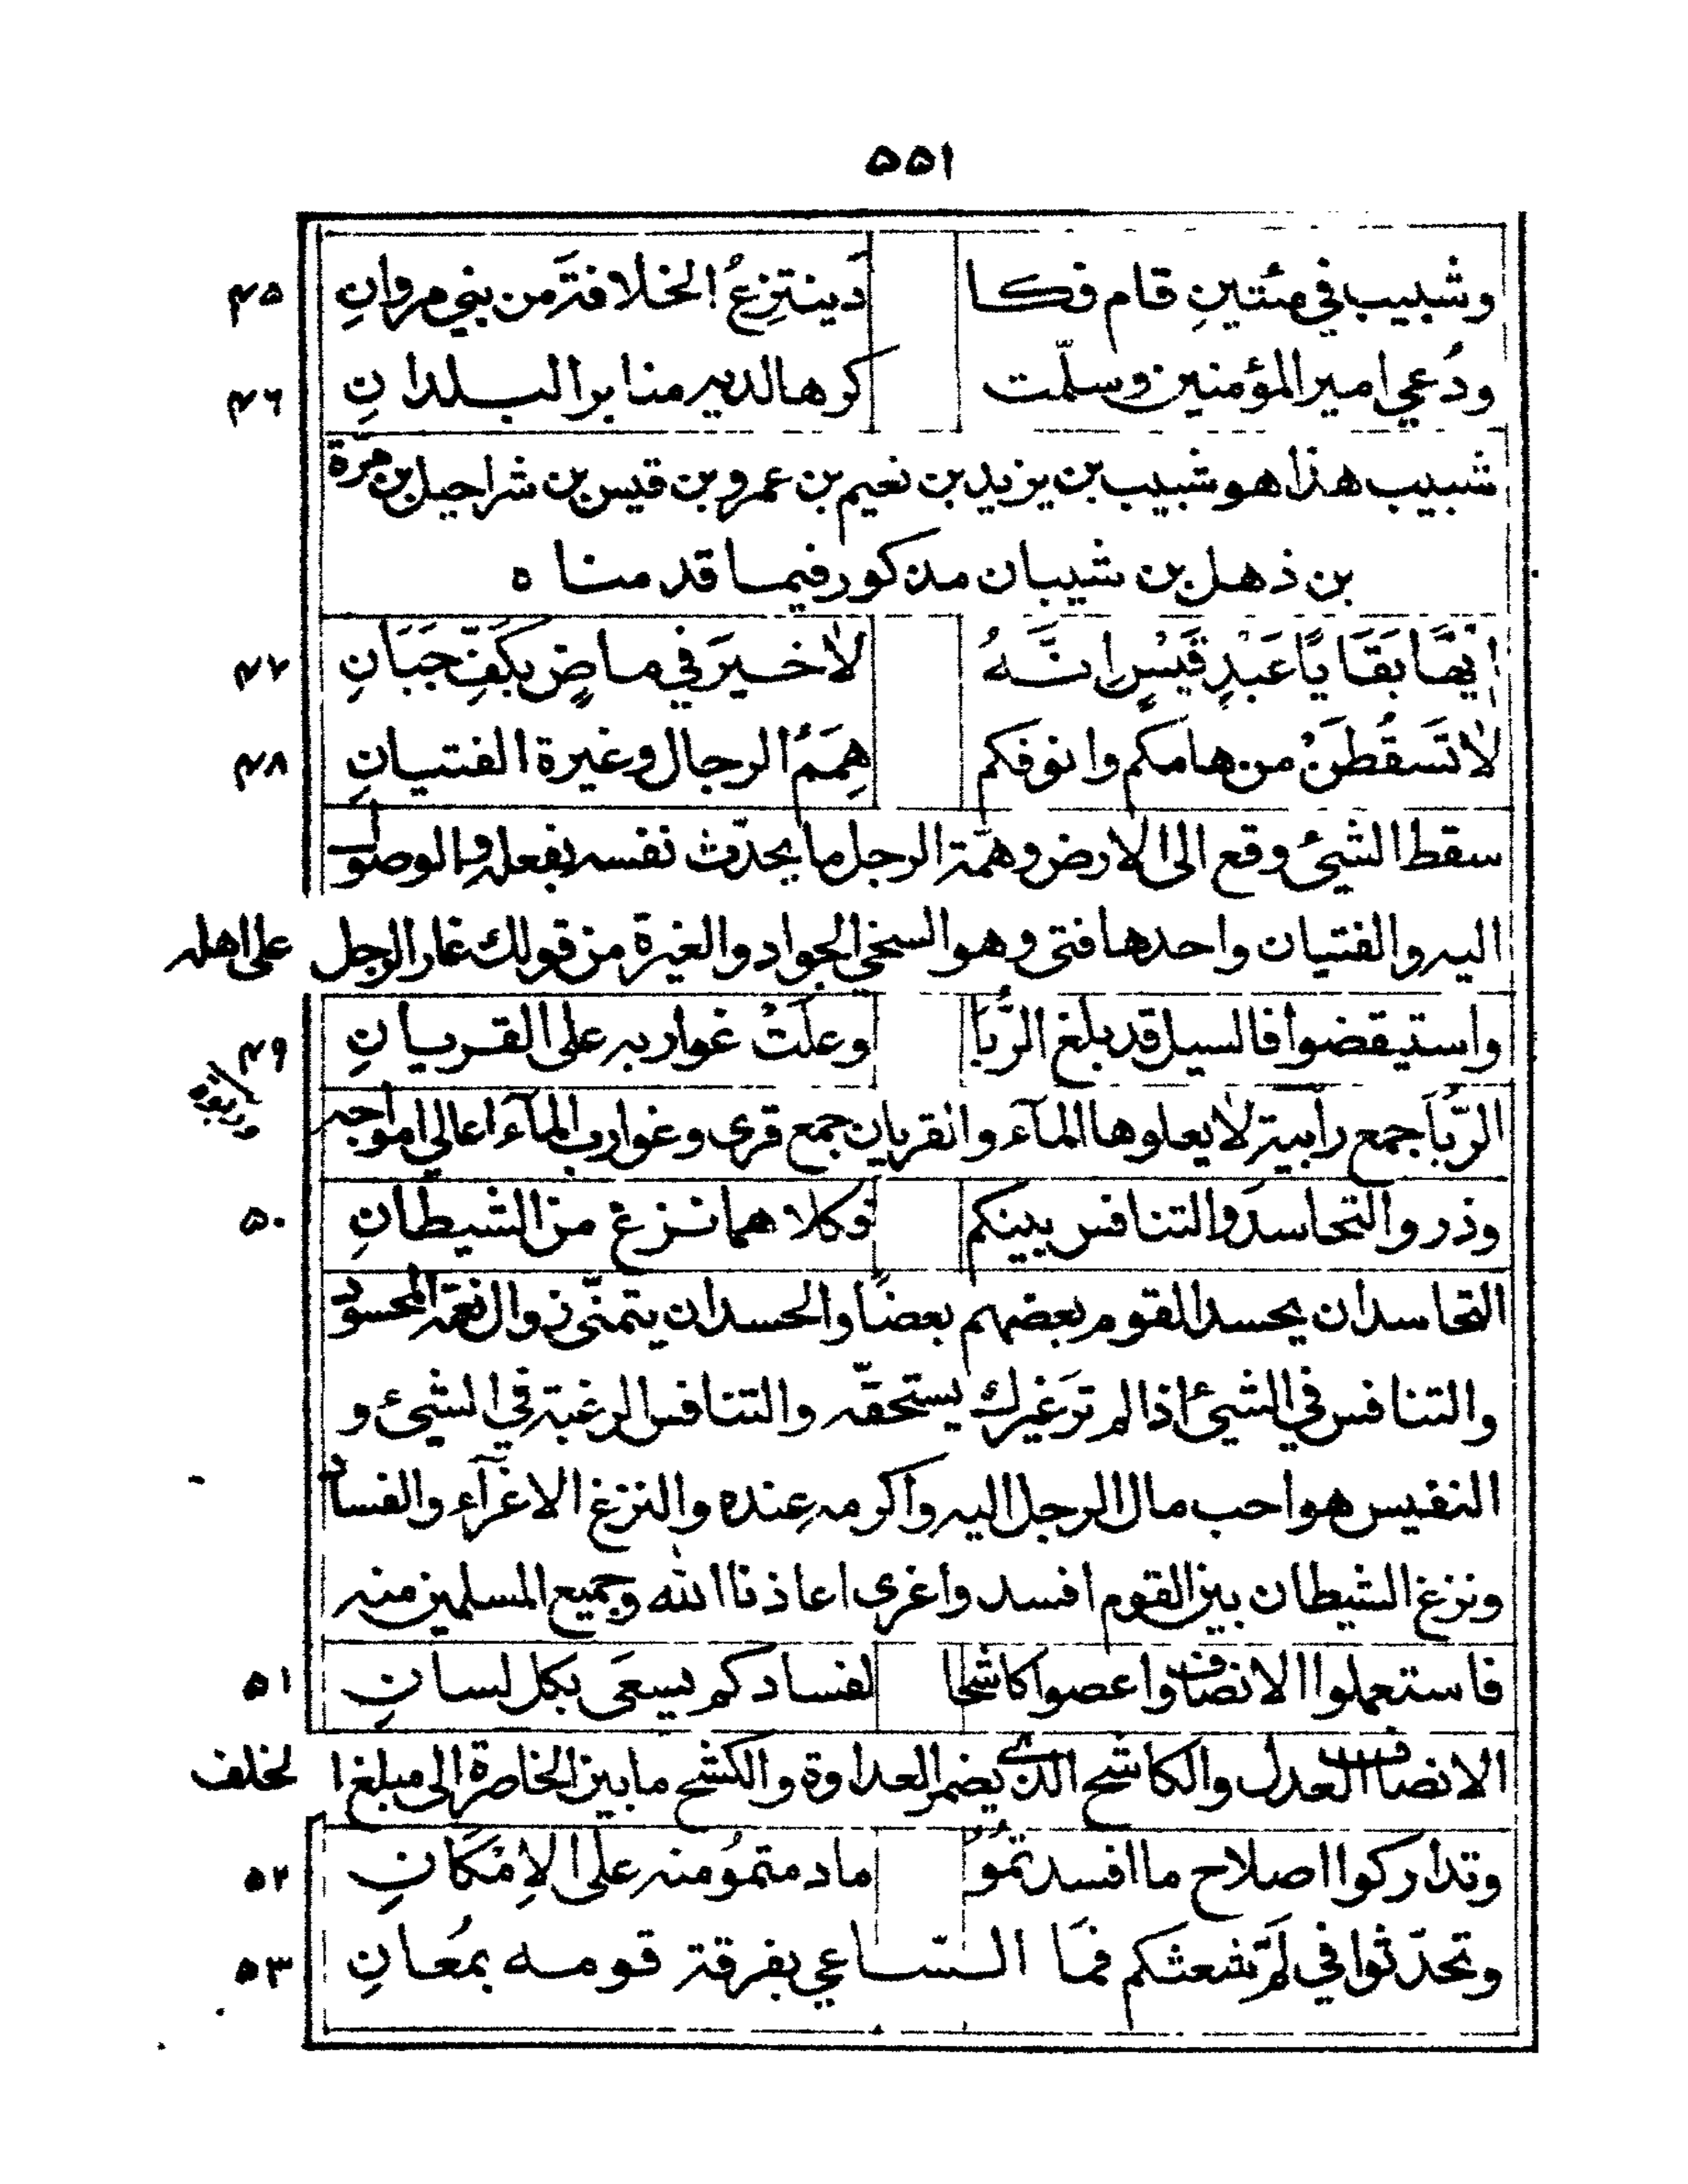 ٥٥١
وشبيب في مئتينِ قام فكا دَ ينتزِعُ الخلافةَ من بني مروانِ ٤٥
ودُعي امير المؤمنين وسلّمت كرها لديه منابر البلدانِ ٤٦
شبيب هذا هو شبيب بن يزيد بن نعيم بن عمرو بن قيس بن شراحيل بن مرّة
بن ذهل بن شيبان مذكور فيما قدمناه
اِيهًا بَقَايًا عَبْدِ قَيْسٍ اِنَّهُ لاٰ خيرَ في ماضٍ بكَفِّ جَبَانِ ٤٧
لاٰ تَسقُطَنْ من هامكم وانوفكم هِمَمُ الرجال وغيرة الفتيانِ ٤٨
سقط الشيئ وقع الى الارض وهمّة الرجل ما يحدّث نفسه بفعله والوصول
اليه والفتيان واحدها فتى وهو السخي الجواد والغيرة من قولك غار الرجل على اهله
واستيقضوا فالسيل قد بلغ الرُّبَا وعلَتْ غواربه على القريانِ ٤٩
الرُّبَا جمع رابية لا يعلوها المآء والقريان جمع قرى وغوارب المآء اعالي امواجه
وذروا التحاسدَ والتنافس بينكم فوكلاهما نزغ من الشيطانِ ٥٠
التحاسد ان يحسد القوم بعضهم بعضًا والحسد ان يتمنّى زوال نعمة المحسود
والتنافس في الشيئ اذا لم تَرَ غيرك يستحقّه والتنافس الرغبة في الشيئ و
النفيس هو احب مال الرجل اليه واكرمه عنده والنزغ الاغرآء والفساد
ونزغ الشيطان بين القوم افسد واغرى اعاذنا الله وجميع المسلمين منه
فاستعملوا الانصاف واعصوا كاشحا لفسادكم يسعَى بكل لسانِ ٥١
الانصاف العدل والكاشح الذي يضمر العداوة والكشح ما بين الخاصرة الى مبلغ الخلف
وتداركوا اصلاح ما افسدتمُو مادمتمُو منه على الاِمْكَانِ ٥٢
وتحدّثوا في لَمّ شعثكم فمَا السّاعي بفرقة قومه بمُعانِ ٥٣